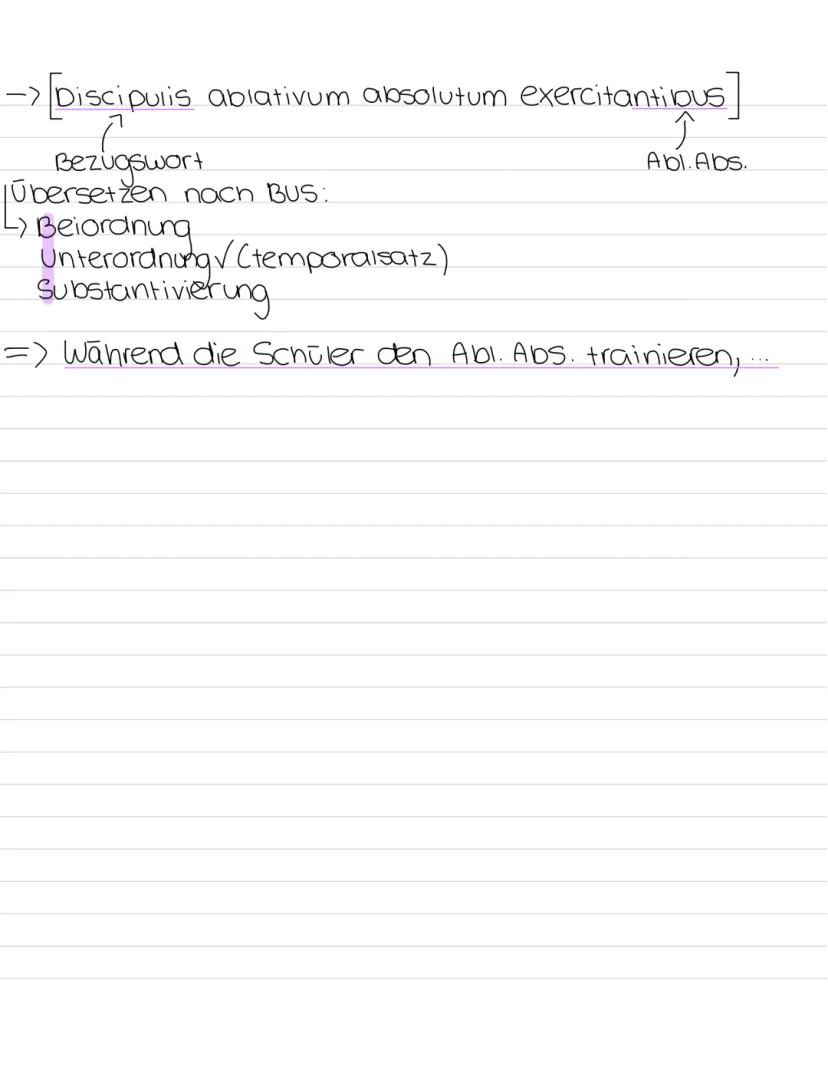 -> [Discipulis ablativum absolutum exercitantibus]
Bezugswort Abl. Abs.
Übersetzen nach BUS:
↳ Beiordnung
Unterordnung ✓ (temporalsatz)
Substantivierung
=> Während die Schüler den Abl. Abs. trainieren, ...